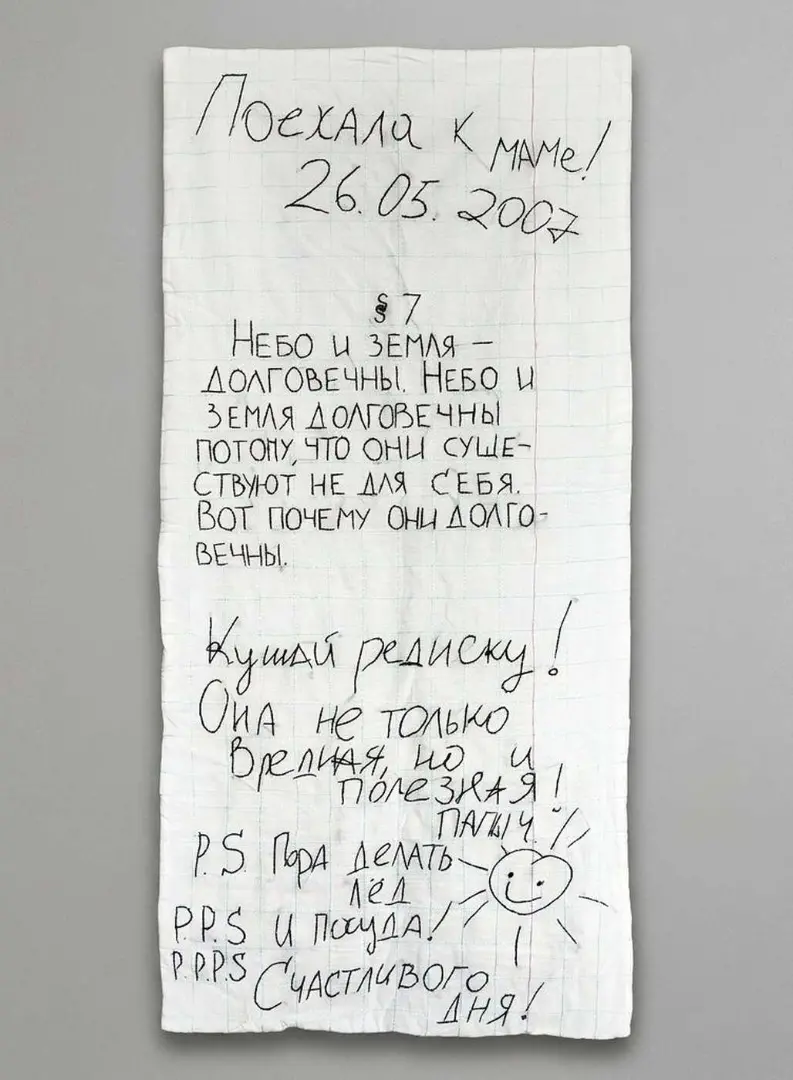 Поехала к маме!
26.05.2007
§ 7
Небо и земля –
долговечны. Небо и
земля долговечны
потому, что они суще-
ствуют не для себя.
Вот почему они долго-
вечны.
Кушай редиску!
Она не только
вредная, но и
полезная!
Папыч.
P.S. Пора делать
лёд
P.P.S И посуда!
P.P.P.S Счастливого
дня!